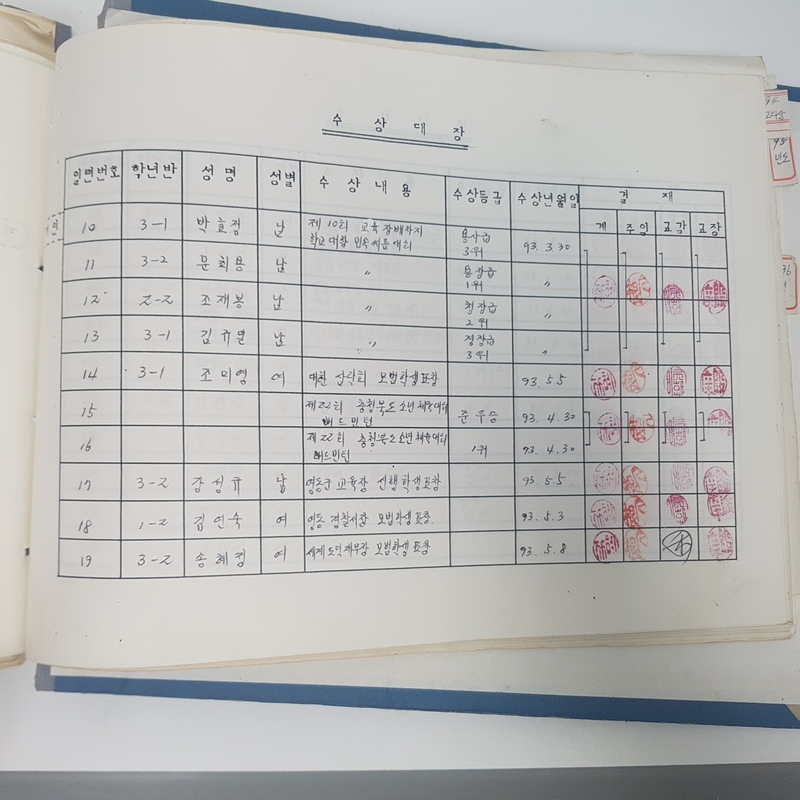 수 상 대 장
일련번호 학년반 성 명 성별 수 상 내 용 수상등급 수상년월일 결 재
계 주임 교감 교장
10 3-1 박효정 남 제10회 교육장배차지 용사급 93. 3. 30
학교대항 민속씨름대회 3위
11 3-2 문희용 남 〃 용장급 〃
1위
12 2-2 조재봉 남 〃 청장급 〃
2위
13 3-1 김규연 남 〃 정장급 〃
3위
14 3-1 조미영 여 대한 산악회 모범학생표창 93. 5. 5
15 제22회 충청북도소년체육대회 준우승 93. 4. 30
배드민턴
16 제22회 충청북도소년체육대회 1위 93. 4. 30
배드민턴
17 3-2 강성규 남 영동군 교육장 선행학생표창 93. 5. 5.
18 1-2 김연숙 여 영동 경찰서장 모범학생 표창. 93. 5. 3
19 3-2 송혜정 여 모범학생 표창 93. 5. 8
94
95
년도